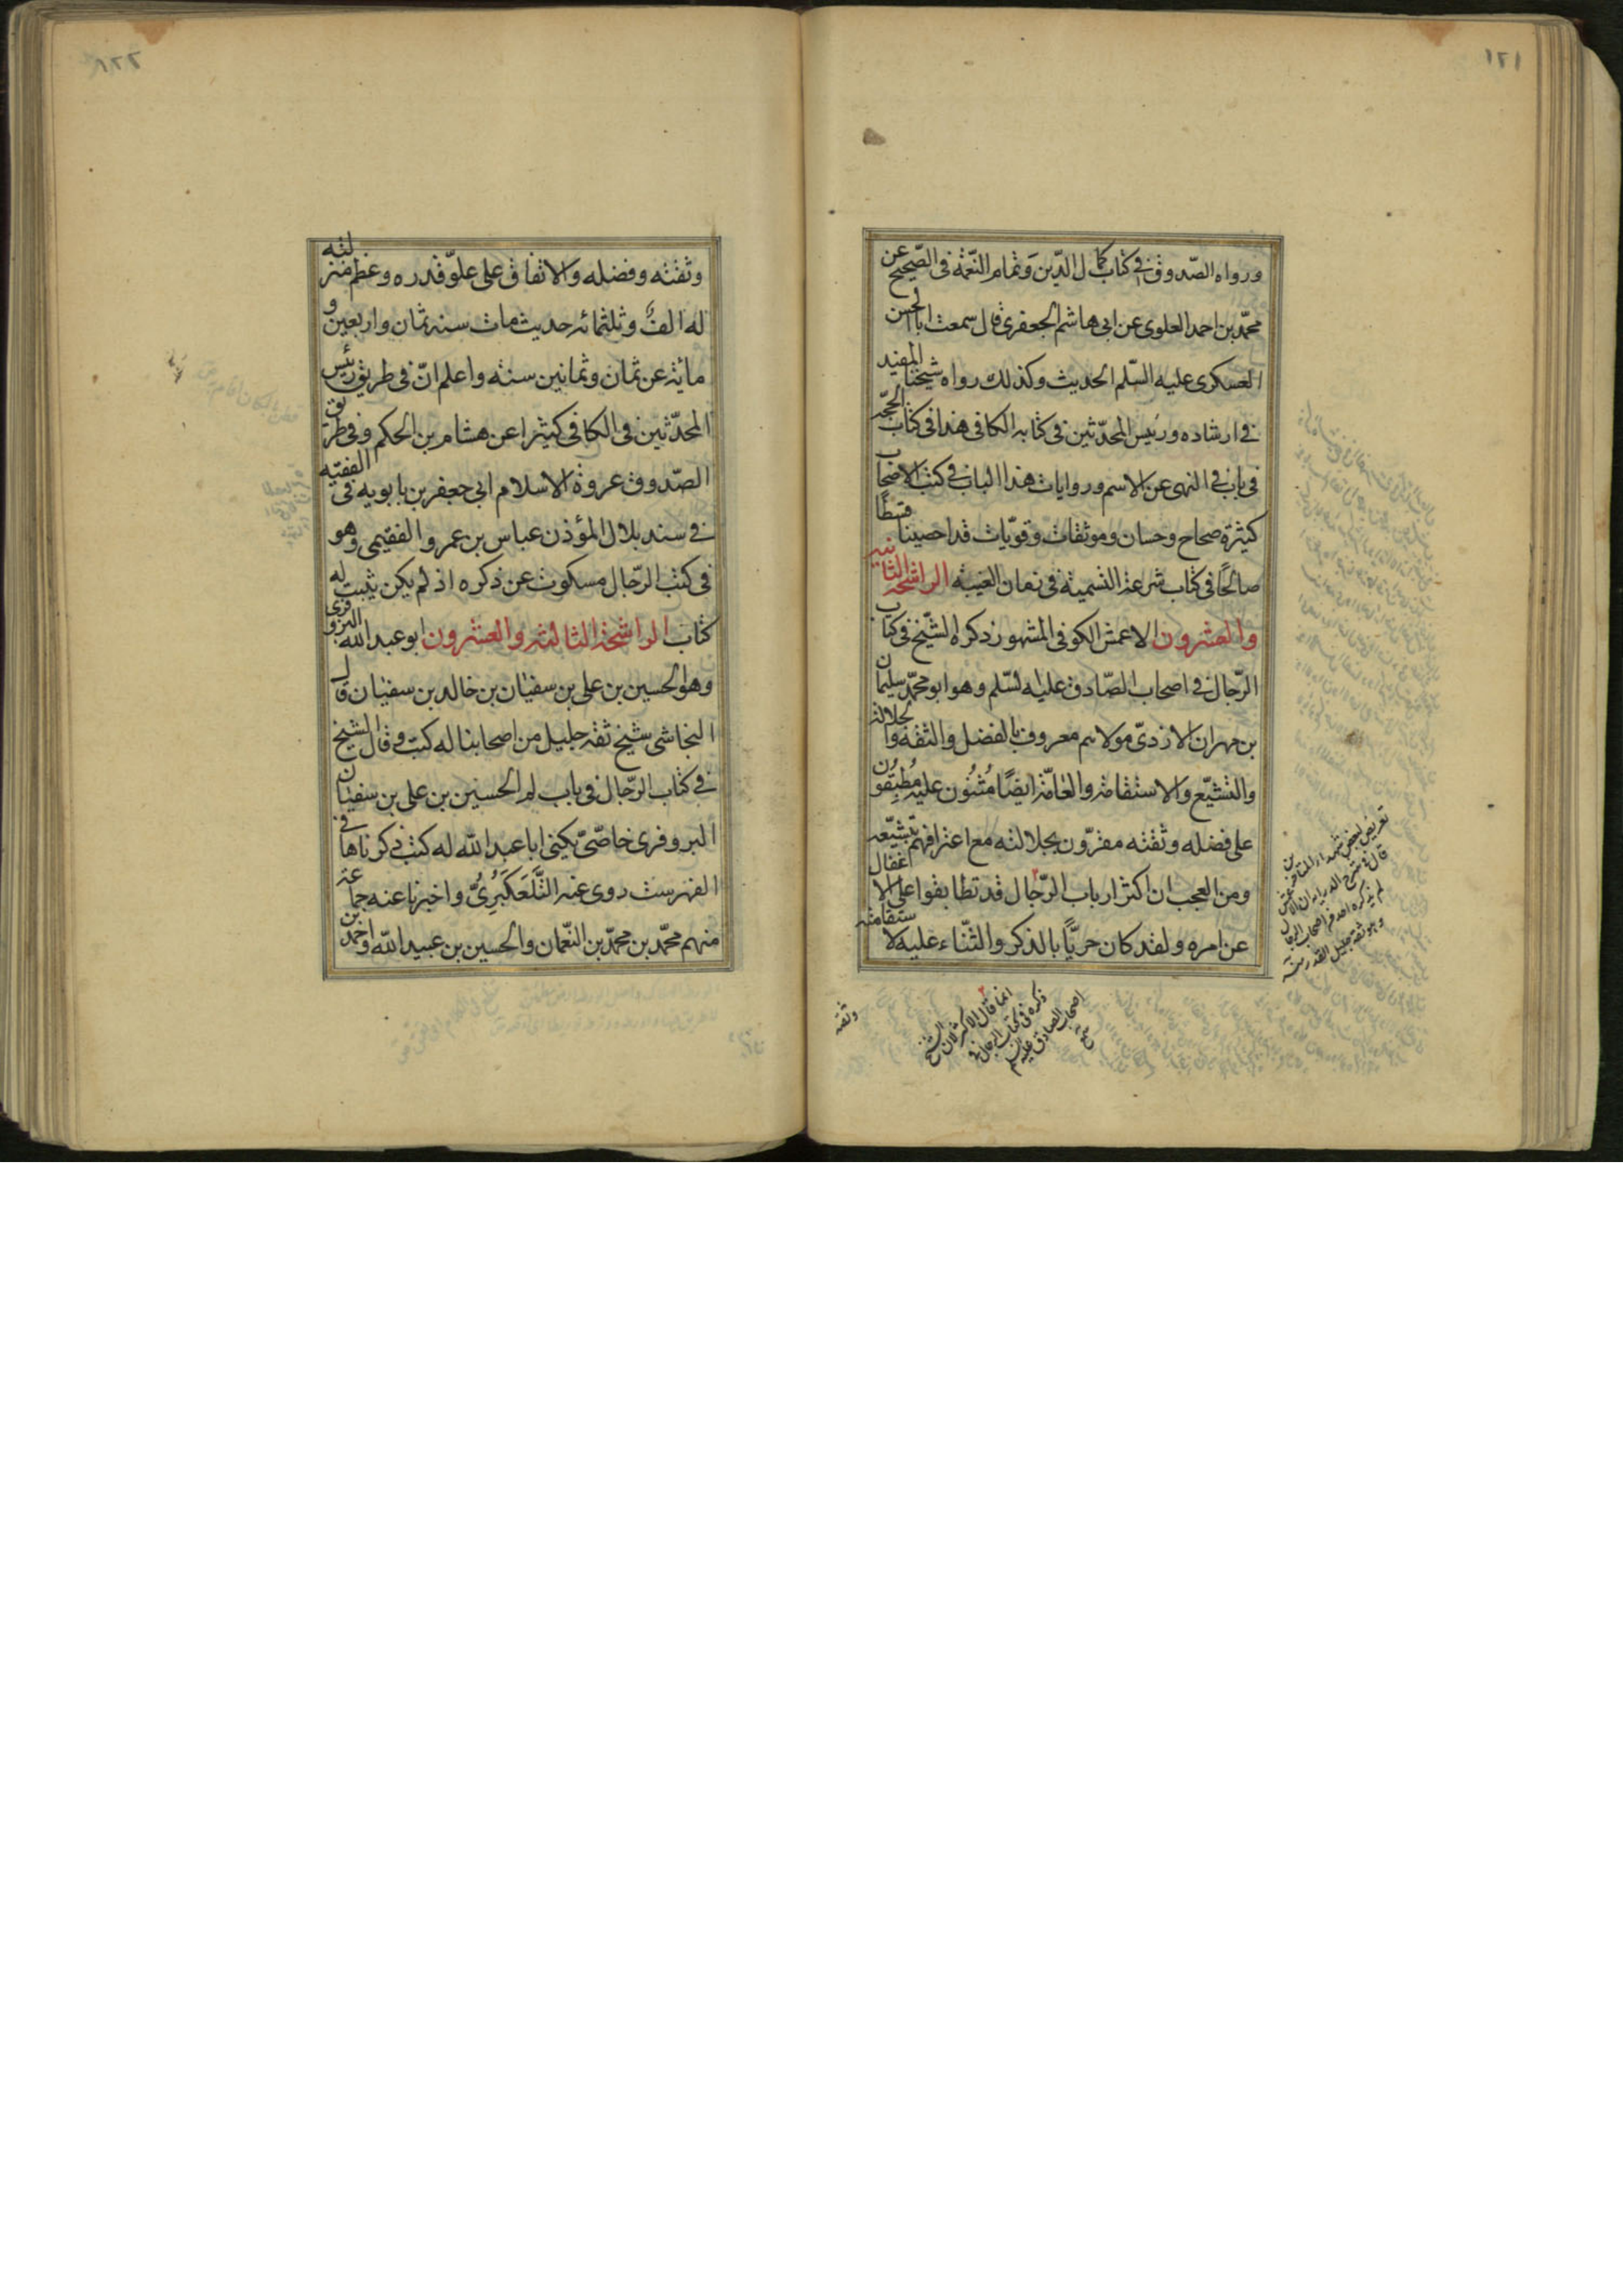 ١٢١
ورواه الصّدوق فى كتاب كمال الدّين وتمام النّعمة فى الصّحيح عن
محمّد بن احمد العلوى عن ابى هاشم الجعفرى قال سمعت ابا الحسن
العسكرى عليه السّلم الحديث وكذلك رواه شيخنا المفيد
فى ارشاده ورئيس المحدّثين فى كتابه الكافى هذا فى كتاب الحجّة
فى باب فى النهى عن الاسم وروايات هذا الباب فى كتب الاصحاب
كثيرة صحاح وحسان وموثقات وقويّات قد احصينا قسطًا
صالحًا فى كتاب شرعة التسمية فى زمان الغيبة الراشحة الثانية
والعشرون الاعمش الكوفى المشهور ذكره الشّيخ فى كتاب
الرّجال فى اصحاب الصّادق عليه السّلم وهو ابو محمّد سليمان
بن مهران الازدىّ مولاهم معروف بالفضل والثقة والجلالة
والتشيّع والاستقامة والعامّة ايضًا مُثنُون عليه مُطبِقُون
على فضله وثقته مقرّون بجلالته مع اعترافهم بتشيّعه
ومن العجب ان اكثر ارباب الرّجال قد تطابقوا على الاغفال
عن امره ولقد كان حريًّا بالذكر والثناء عليه لاستقامته
تعريض لبعض شهداء المتاخرين
قال فى شرح الدراية ان الاعمش
لم يذكره احد من اصحاب الرجال
وهو ثقة جليل القدر منه
انما قال الاكثر لان الشيخ
ذكره فى كتاب الرجال فى
اصحاب الصادق عليه السلم
وثقته
١٢٢
وثقته وفضله والاتفاق على علوّ قدره وعظم منزلته
له الفٌ وثلثمائة حديث مات سنة ثمان واربعين و
مائة عن ثمان وثمانين سنة واعلم انّ فى طريق رئيس
المحدّثين فى الكافى كثيرا عن هشام بن الحكم وفى طريق
الصّدوق عروة الاسلام ابى جعفر بن بابويه فى الفقيه
فى سند بلال المؤذن عباس بن عمرو الفقيمى وهو
فى كتب الرّجال مسكوت عن ذكره اذ لم يكن يثبت له
كتاب الراشحة الثالثة والعشرون ابو عبد الله البزوفرى
وهو الحسين بن على بن سفيان بن خالد بن سفيان قال
النجاشى شيخ ثقة جليل من اصحابنا له كتب وقال الشيخ
فى كتاب الرّجال فى باب لم الحسين بن على بن سفيان
البزوفرى خاصّىّ يكنى ابا عبد الله له كتب ذكرناها فى
الفهرست روى عنه التَّلَّعَكْبَرِىُّ واخبرنا عنه جماعة
منهم محمّد بن محمّد بن النّعمان والحسين بن عبيد الله واحمد بن